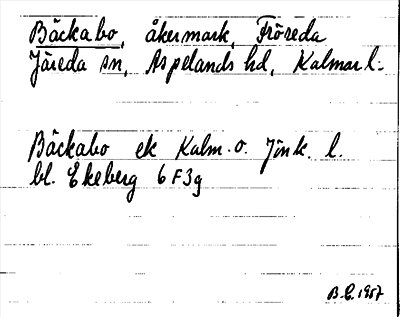 Bäckabo, åkermark, Fröreda
Järeda sn, Aspelands hd, Kalmar l.
Bäckabo ek Kalm. o. Jönk. l.
bl. Ekeberg 6 F3g
B.E. 1957